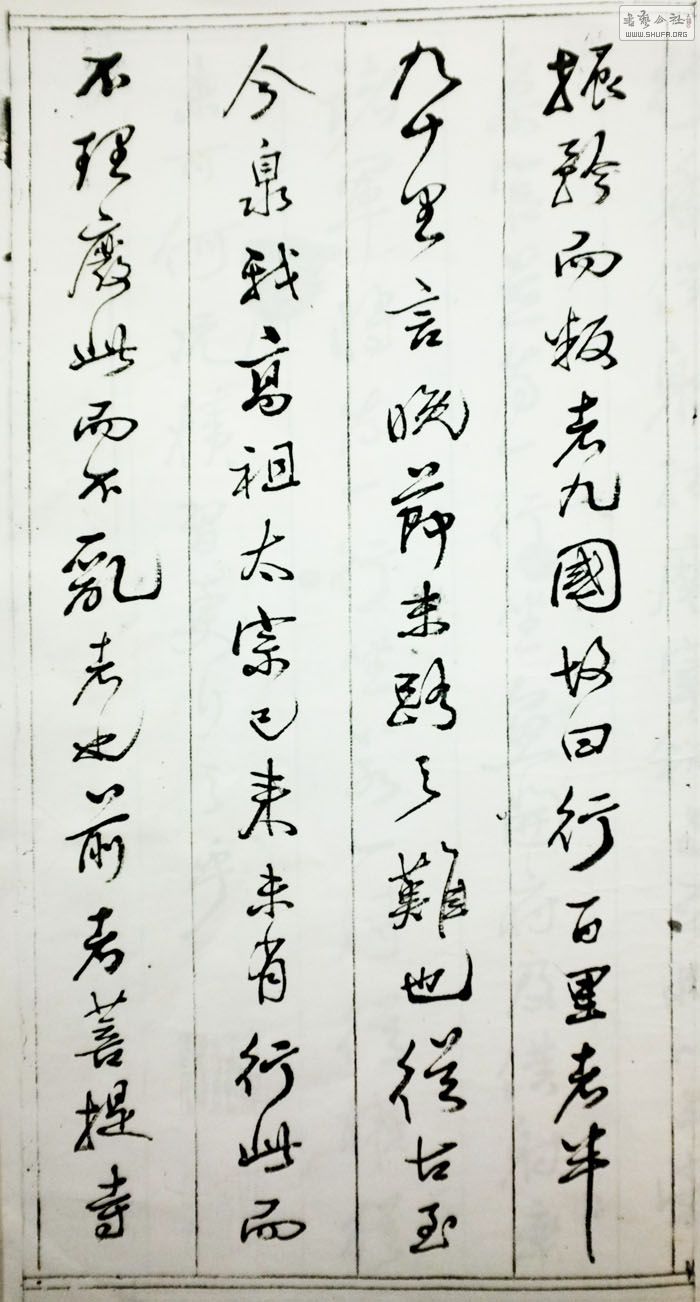 書藝公社
WWW.SHUFA.ORG
振矜而叛者九國故曰行百里者半
九十里言晚節末路之難也從古至
今泉我高祖太宗已來未有行此而
不理廢此而不亂者也前者菩提寺